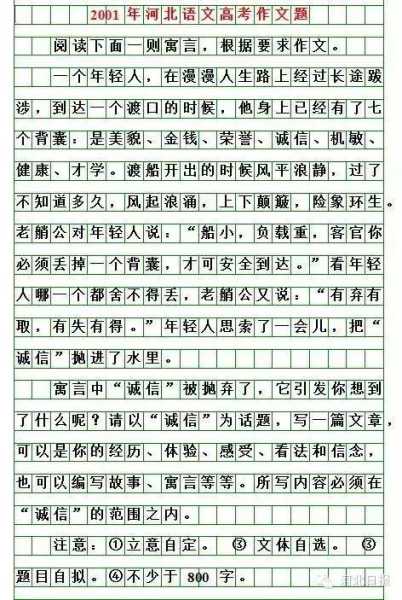 2001年河北语文高考作文题
阅读下面一则寓言，根据要求作文。
一个年轻人，在漫漫人生路上经过长途跋
涉，到达一个渡口的时候，他身上已经有了七
个背囊：是美貌、金钱、荣誉、诚信、机敏、
健康、才学。渡船开出的时候风平浪静，过了
不知道多久，风起浪涌，上下颠簸，险象环生。
老艄公对年轻人说：“船小，负载重，客官你
必须丢掉一个背囊，才可安全到达。”看年轻
人哪一个都舍不得丢，老艄公又说：“有弃有
取，有失有得。”年轻人思索了一会儿，把“
诚信”抛进了水里。
寓言中“诚信”被抛弃了，它引发你想到
了什么呢？请以“诚信”为话题，写一篇文章，
可以是你的经历、体验、感受、看法和信念，
也可以编写故事、寓言等等。所写内容必须在
“诚信”的范围之内。
注意：①立意自定。③文体自选。③
题目自拟。④不少于800字。
河北日报